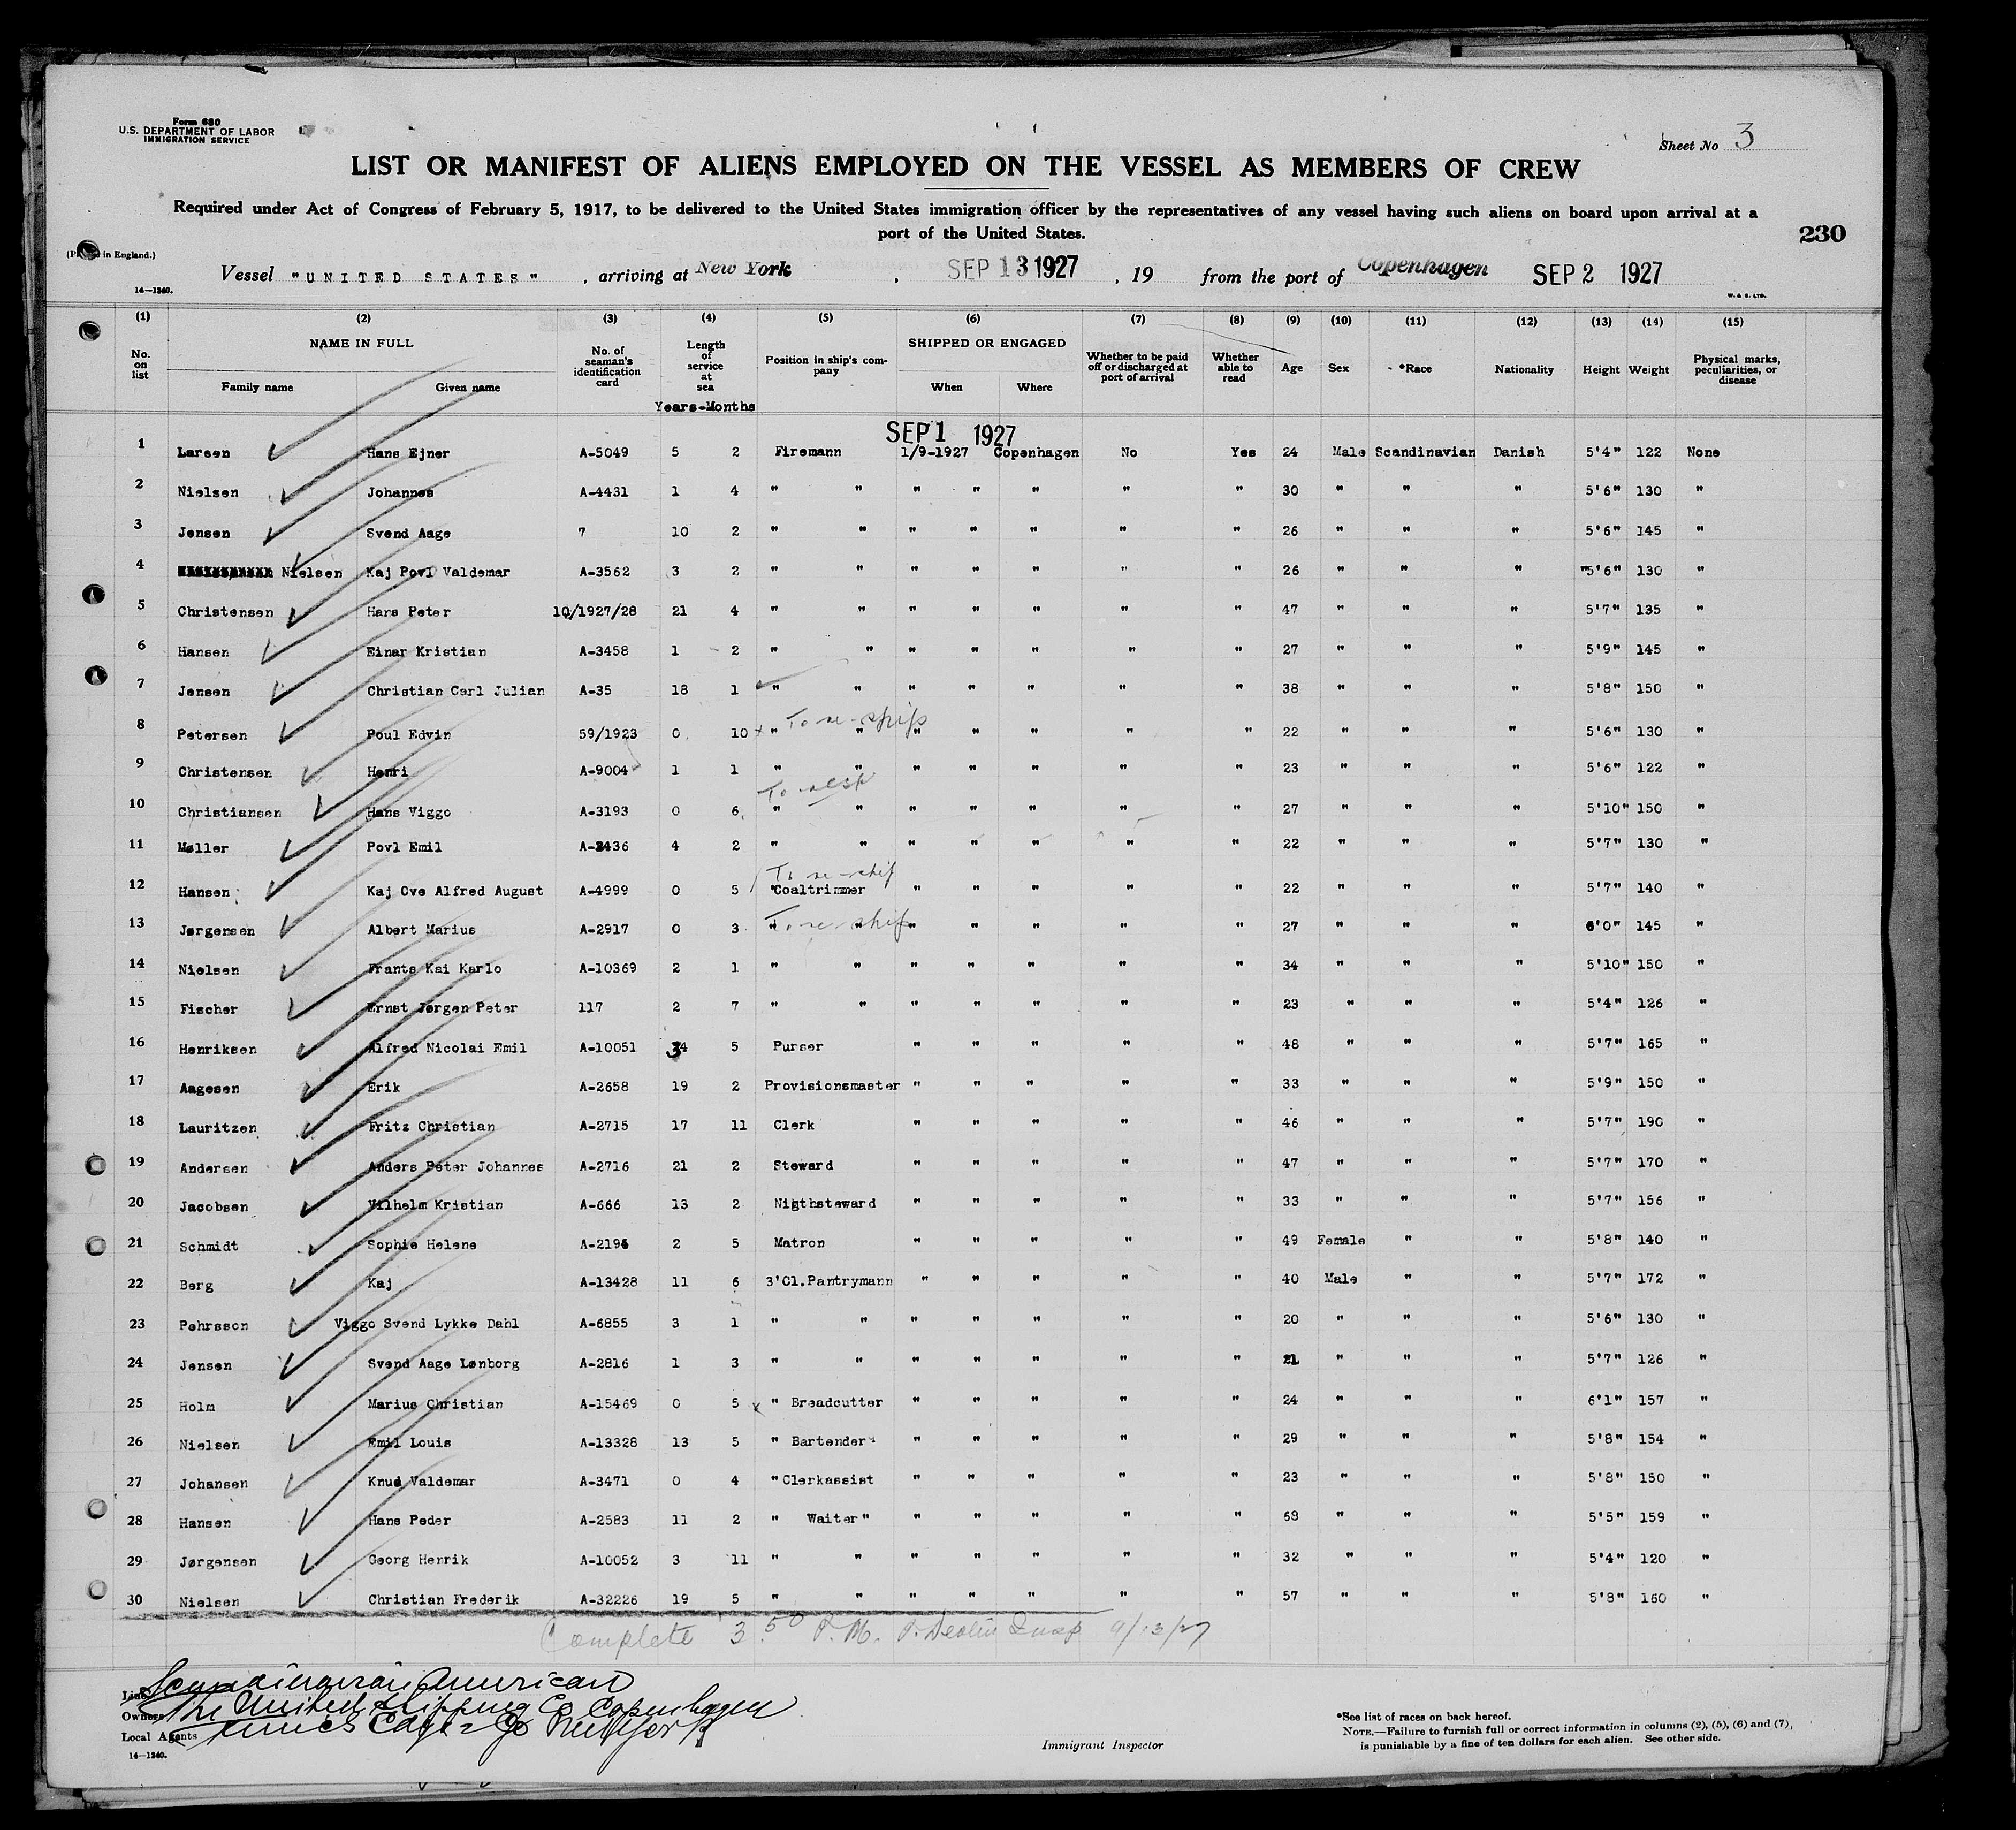 Form 680
U.S. DEPARTMENT OF LABOR
IMMIGRATION SERVICE
Sheet No 3
LIST OR MANIFEST OF ALIENS EMPLOYED ON THE VESSEL AS MEMBERS OF CREW
Required under Act of Congress of February 5, 1917, to be delivered to the United States immigration officer by the representatives of any vessel having such aliens on board upon arrival at a
port of the United States.
230
in England.)
Vessel "UNITED STATES" , arriving at New York , SEP 13 1927 , 19 from the port of Copenhagen SEP 2 1927
14—1240.
W. & S. LTD.
(1) (2) (3) (4) (5) (6) (7) (8) (9) (10) (11) (12) (13) (14) (15)
No. on list NAME IN FULL Family name Given name No. of seaman's identification card Length of service at sea Years-Months Position in ship's company SHIPPED OR ENGAGED When Where Whether to be paid off or discharged at port of arrival Whether able to read Age Sex *Race Nationality Height Weight Physical marks, peculiarities, or disease
SEP 1 1927
1 Larsen Hans Ejner A-5049 5 2 Firemann 1/9-1927 Copenhagen No Yes 24 Male Scandinavian Danish 5'4" 122 None
2 Nielsen Johannes A-4431 1 4 " " " " " " " 30 " " " 5'6" 130 "
3 Jensen Svend Aage 7 10 2 " " " " " " " 26 " " " 5'6" 145 "
4 Nielsen Kaj Povl Valdemar A-3562 3 2 " " " " " " " 26 " " " "5'6" 130 "
5 Christensen Hans Peter 10/1927/28 21 4 " " " " " " " 47 " " " 5'7" 135 "
6 Hansen Einar Kristian A-3458 1 2 " " " " " " " 27 " " " 5'9" 145 "
7 Jensen Christian Carl Julian A-35 18 1 " " " " " " " 38 " " " 5'8" 150 "
To re-ship
8 Petersen Poul Edvin 59/1923 0 10 " " " " " " " 22 " " " 5'6" 130 "
9 Christensen Henri A-9004 1 1 " " " " " " " 23 " " " 5'6" 122 "
10 Christiansen Hans Viggo A-3193 0 6 " " " " " " " 27 " " " 5'10" 150 "
11 Møller Povl Emil A-2436 4 2 " " " " " " " 22 " " " 5'7" 130 "
To re-ship
12 Hansen Kaj Ove Alfred August A-4999 0 5 Coaltrimmer " " " " " 22 " " " 5'7" 140 "
To re-ship
13 Jørgensen Albert Marius A-2917 0 3 " " " " " " " 27 " " " 6'0" 145 "
14 Nielsen Frants Kai Karlo A-10369 2 1 " " " " " " " 34 " " " 5'10" 150 "
15 Fischer Ernst Jørgen Peter 117 2 7 " " " " " " " 23 " " " 5'4" 126 "
16 Henriksen Alfred Nicolai Emil A-10051 34 5 Purser " " " " " 48 " " " 5'7" 165 "
17 Aagesen Erik A-2658 19 2 Provisionsmaster " " " " " 33 " " " 5'9" 150 "
18 Lauritzen Fritz Christian A-2715 17 11 Clerk " " " " " 46 " " " 5'7" 190 "
19 Andersen Anders Peter Johannes A-2716 21 2 Steward " " " " " 47 " " " 5'7" 170 "
20 Jacobsen Vilhelm Kristian A-666 13 2 Nigthsteward " " " " " 33 " " " 5'7" 156 "
21 Schmidt Sophie Helene A-2194 2 5 Matron " " " " " 49 Female " " 5'8" 140 "
22 Berg Kaj A-13428 11 6 3'Cl.Pantrymann " " " " " 40 Male " " 5'7" 172 "
23 Pehrsson Viggo Svend Lykke Dahl A-6855 3 1 " " " " " " " 20 " " " 5'6" 130 "
24 Jensen Svend Aage Lønborg A-2816 1 3 " " " " " " " 21 " " " 5'7" 126 "
25 Holm Marius Christian A-15469 0 5 " Breadcutter " " " " " 24 " " " 6'1" 157 "
26 Nielsen Emil Louis A-13328 13 5 " Bartender " " " " " 29 " " " 5'8" 154 "
27 Johansen Knud Valdemar A-3471 0 4 " Clerkassist " " " " " 23 " " " 5'8" 150 "
28 Hansen Hans Peder A-2583 11 2 " Waiter" " " " " " 68 " " " 5'5" 159 "
29 Jørgensen Georg Henrik A-10052 3 11 " " " " " " " 32 " " " 5'4" 120 "
30 Nielsen Christian Frederik A-32226 19 5 " " " " " " " 57 " " " 5'8" 160 "
Complete 3.50 P.M. Insp 9/13/27
Line Scandinavian American
Owners The United Shipping Co Copenhagen
Local Agents New York
14—1240.
Immigrant Inspector
*See list of races on back hereof.
NOTE.—Failure to furnish full or correct information in columns (2), (5), (6) and (7),
is punishable by a fine of ten dollars for each alien. See other side.